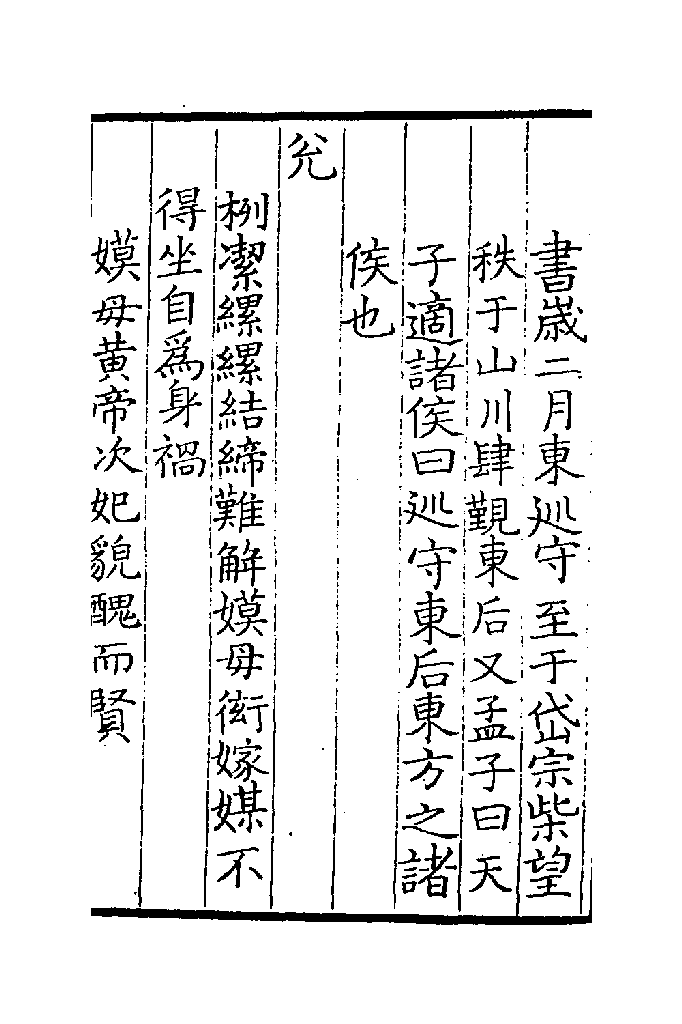 書歳二月東廵守至于岱宗柴望
秩于山川肆覲東后又孟子曰天
子適諸侯曰廵守東后東方之諸
侯也
兊
栵㓗縲縲結締難解嫫母衒嫁媒不
得坐自爲身禍
嫫母黄帝次妃貌醜而賢